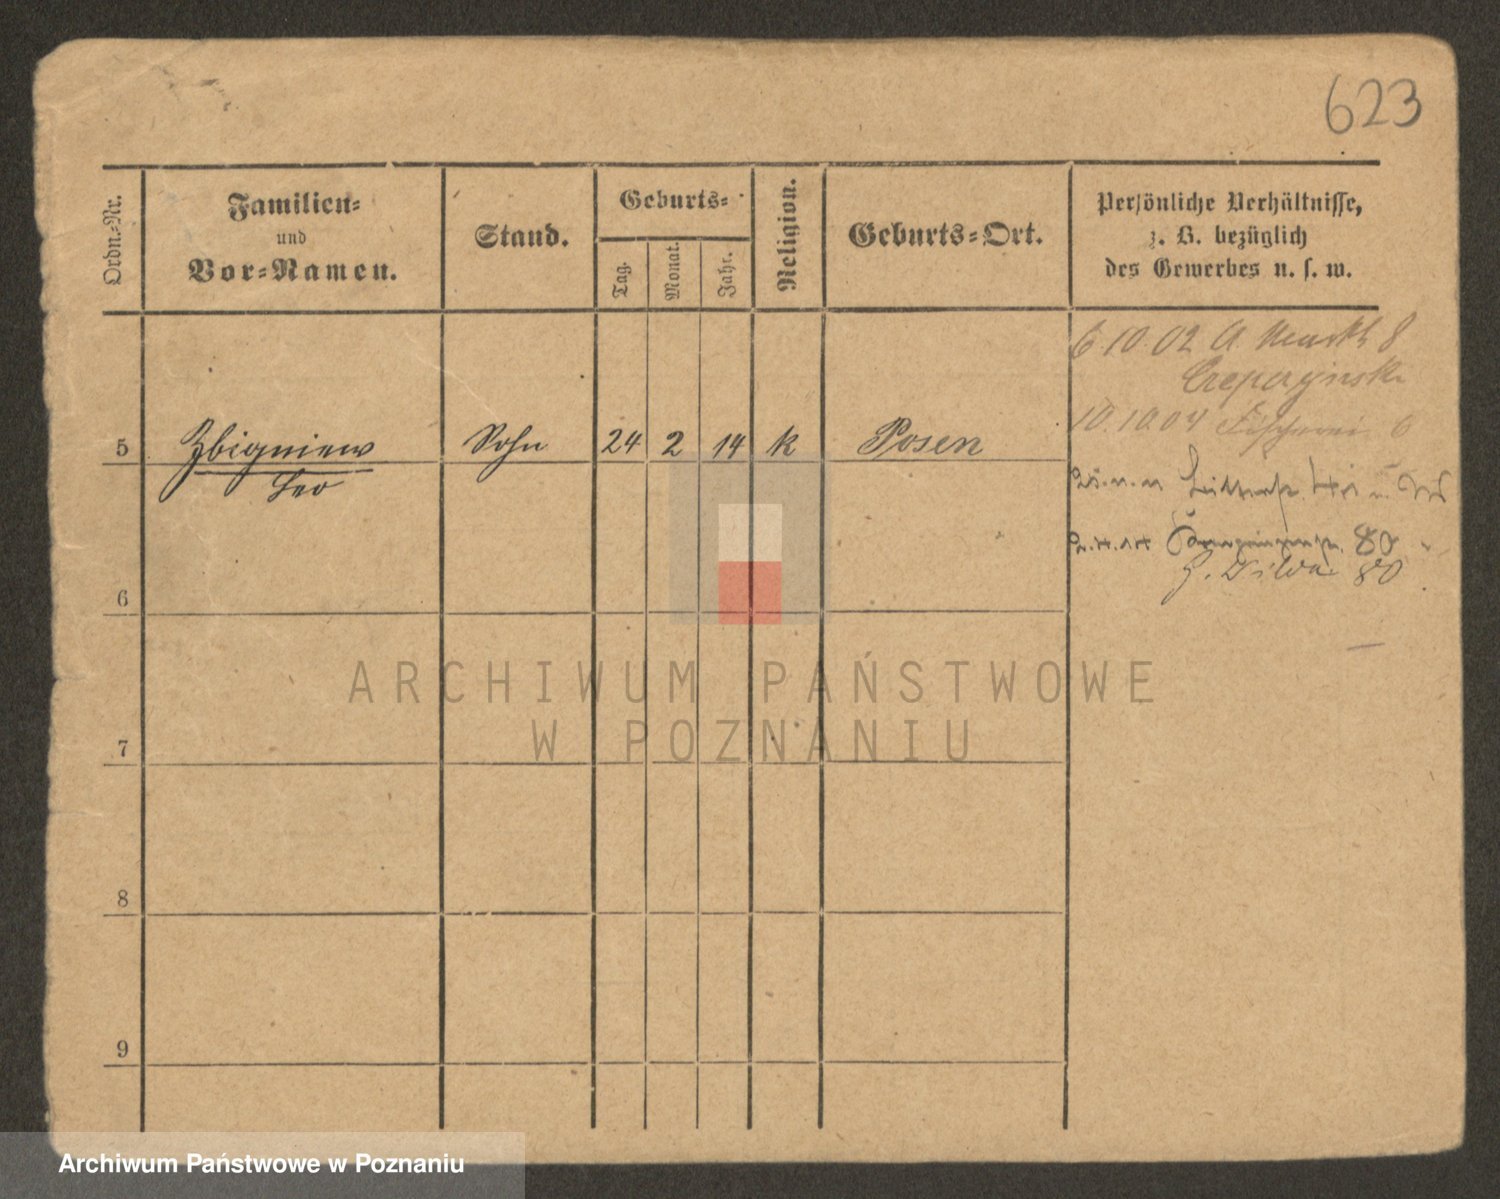 623
Ordn.-Nr.
Familien-
und
Vor-Namen.
Stand.
Geburts-
Tag.
Monat.
Jahr.
Religion.
Geburts-Ort.
Persönliche Verhältnisse,
z. B. bezüglich
des Gewerbes u. s. w.
6.10.02 A. Markt 8
10.10.04 Fischerei 6
5 Zbigniew Sohn 24 2 14 k Posen
Leo
80
80
6
7
8
9
ARCHIWUM PAŃSTWOWE
W POZNANIU
Archiwum Państwowe w Poznaniu